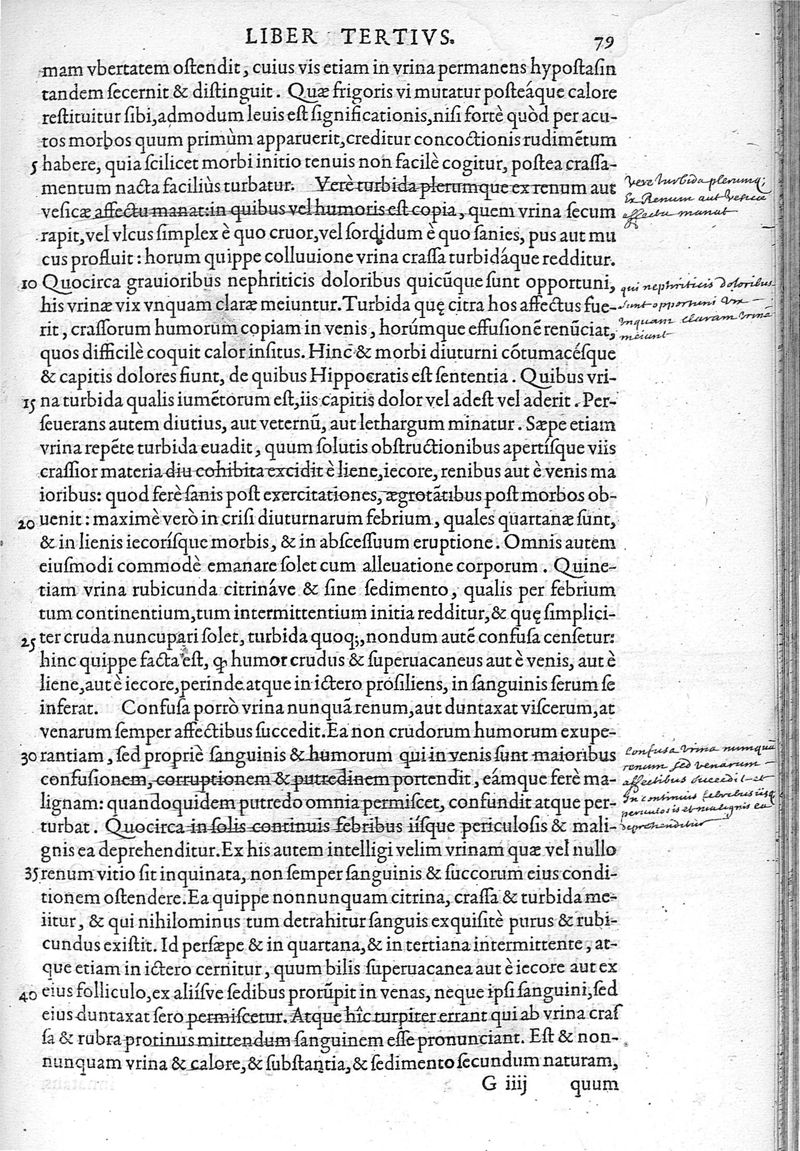 LIBER TERTIVS. 79
mam vbertatem ostendit, cuius vis etiam in vrina permanens hypostasin
tandem secernit & distinguit. Quæ frigoris vi mutatur posteáque calore
restituitur sibi, admodum leuis est significationis, nisi fortè quòd per acu-
tos morbos quum primùm apparuerit, creditur concoctionis rudimētum
5 habere, quia scilicet morbi initio tenuis non facilè cogitur, postea crassa-
mentum nacta faciliùs turbatur. Verè turbida plerumque ex renum aut
vesicæ affectu manat: in quibus vel humoris est copia, quem vrina secum
rapit, vel vlcus simplex è quo cruor, vel sordidum è quo sanies, pus aut mu
cus profluit: horum quippe colluuione vrina crassa turbidáque redditur.
10 Quocirca grauioribus nephriticis doloribus quicūque sunt opportuni,
his vrinæ vix vnquam claræ meiuntur. Turbida quę citra hos affectus fue-
rit, crassorum humorum copiam in venis, horúmque effusionē renūciat,
quos difficilè coquit calor insitus. Hinc & morbi diuturni cōtumacésque
& capitis dolores fiunt, de quibus Hippocratis est sententia. Quibus vri-
15 na turbida qualis iumētorum est, iis capitis dolor vel adest vel aderit. Per-
seuerans autem diutius, aut veternū, aut lethargum minatur. Sæpe etiam
vrina repēte turbida euadit, quum solutis obstructionibus apertísque viis
crassior materia diu cohibita excidit è liene, iecore, renibus aut è venis ma
ioribus: quod ferè sanis post exercitationes, ægrotātibus post morbos ob-
20 uenit: maximè verò in crisi diuturnarum febrium, quales quartanæ sunt,
& in lienis iecorísque morbis, & in abscessuum eruptione. Omnis autem
eiusmodi commodè emanare solet cum alleuatione corporum. Quine-
tiam vrina rubicunda citrináve & sine sedimento, qualis per febrium
tum continentium, tum intermittentium initia redditur, & quę simplici-
25 ter cruda nuncupari solet, turbida quoq;, nondum autē confusa censetur:
hinc quippe facta est, ꝙ humor crudus & superuacaneus aut è venis, aut è
liene, aut è iecore, perinde atque in ictero prosiliens, in sanguinis serum se
inferat. Confusa porrò vrina nunquā renum, aut duntaxat viscerum, at
venarum semper affectibus succedit. Ea non crudorum humorum exupe-
30 rantiam, sed propriè sanguinis & humorum qui in venis sunt maioribus
confusionem, corruptionem & putredinem portendit, eámque ferè ma-
lignam: quandoquidem putredo omnia permiscet, confundit atque per-
turbat. Quocirca in solis continuis febribus iisque periculosis & mali-
gnis ea deprehenditur. Ex his autem intelligi velim vrinam quæ vel nullo
35 renum vitio sit inquinata, non semper sanguinis & succorum eius condi-
tionem ostendere. Ea quippe nonnunquam citrina, crassa & turbida me-
iitur, & qui nihilominus tum detrahitur sanguis exquisitè purus & rubi-
cundus existit. Id persæpe & in quartana, & in tertiana intermittente, at-
que etiam in ictero cernitur, quum bilis superuacanea aut è iecore aut ex
40 eius folliculo, ex aliísve sedibus prorūpit in venas, neque ipsi sanguini, sed
eius duntaxat sero permiscetur. Atque hîc turpiter errant qui ab vrina cras
sa & rubra protinus mittendum sanguinem esse pronunciant. Est & non-
nunquam vrina & calore, & substantia, & sedimento secundum naturam,
G iiij quum
vere turbida plerumq;
Ex Renum aut vesicæ
affectu manat
qui nephriticis doloribus
sunt opportuni vix
vnquam claram vrinã
meiunt
Confusa vrina nunquã
renum sed venarum
affectibus succedit et
In continuis febribus iisq
periculosis et malignis ea
deprehenditur